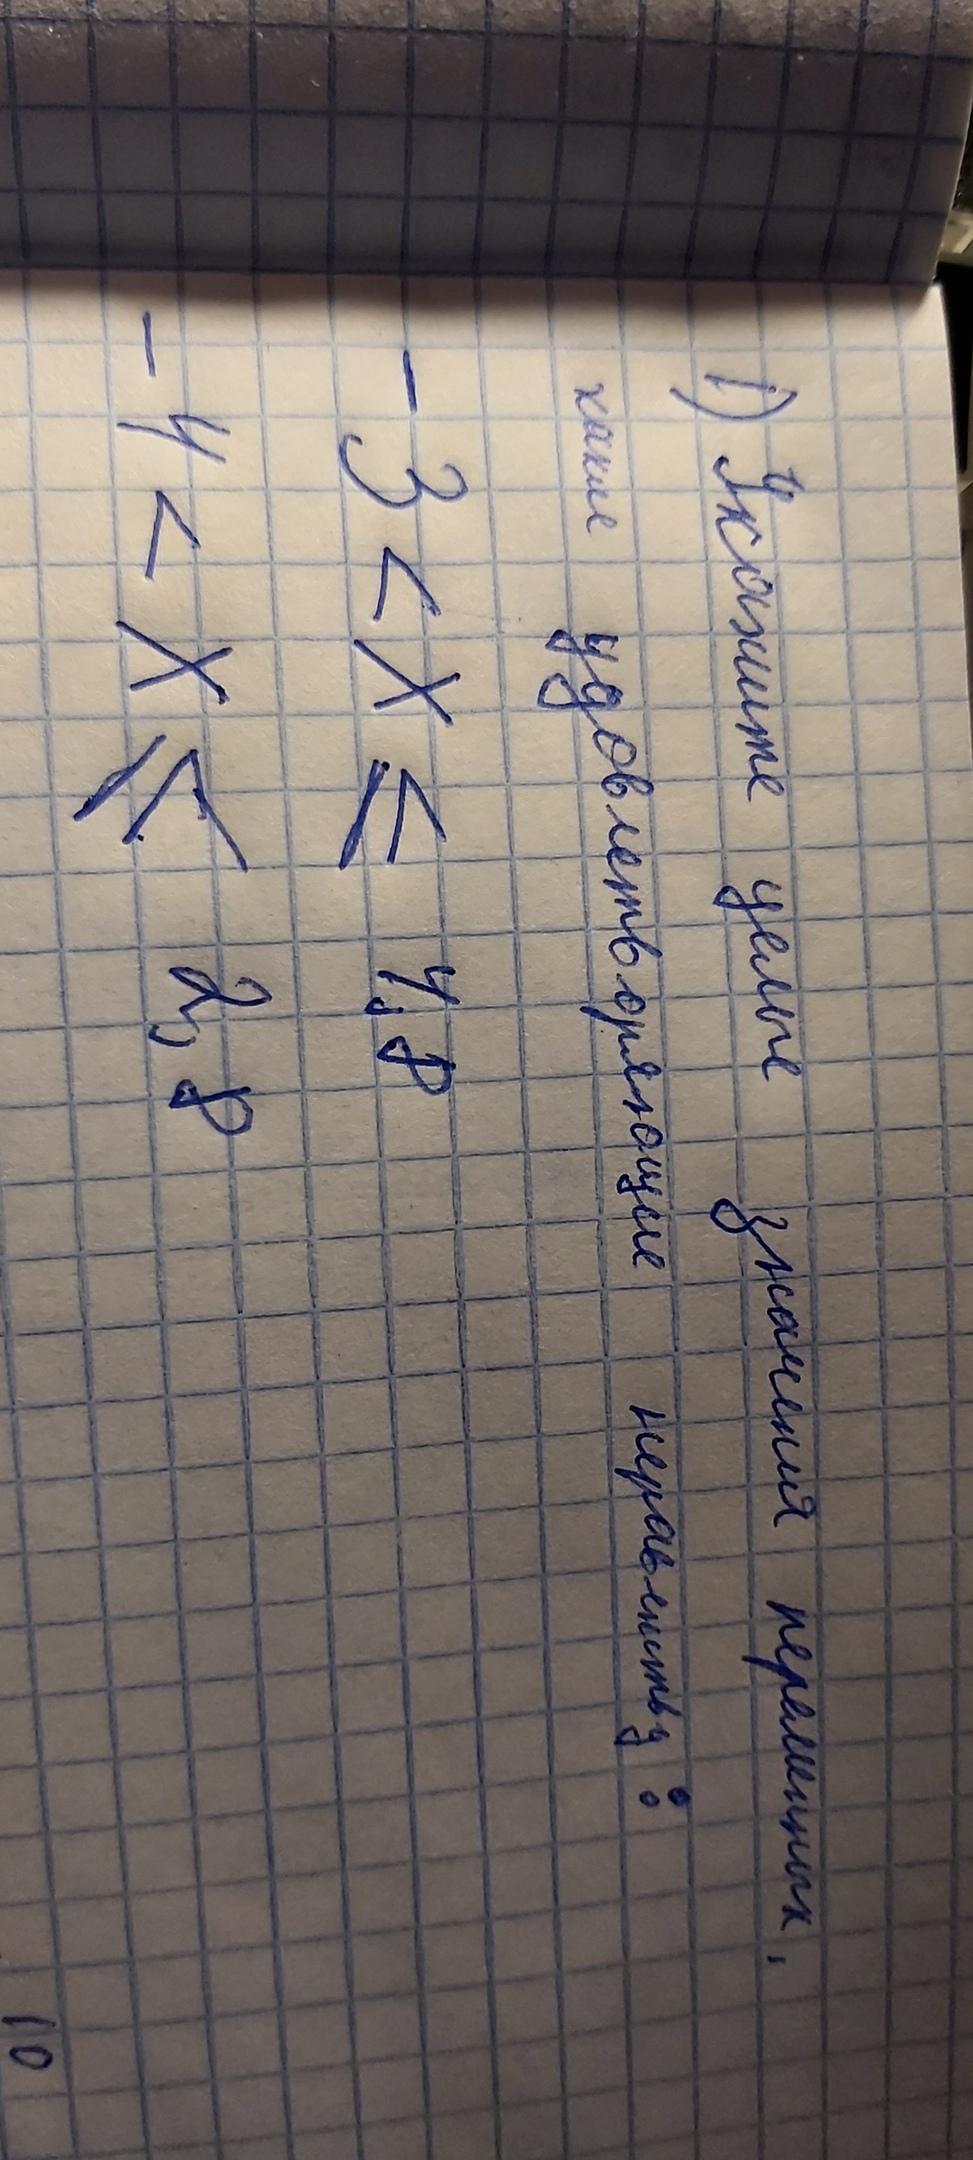 1) Укажите целые значения переменных,
какие удовлетворяющие неравенству:
- 3 < x ≤ 4,8
- 4 < x ≤ 2,8
10